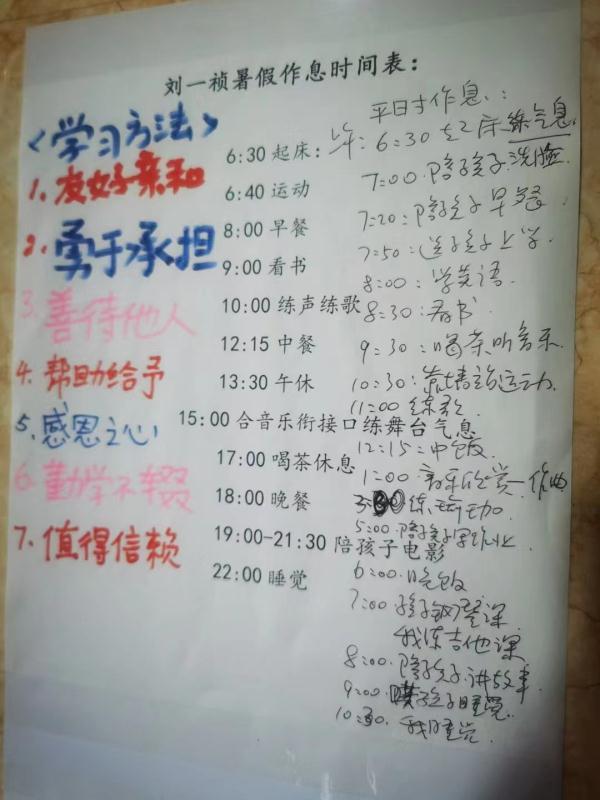 刘一祯暑假作息时间表：
<学习方法>
1. 友好亲和
2. 勇于承担
3. 善待他人
4. 帮助给予
5、感恩之心
6. 勤学不辍
7. 值得信赖
6:30 起床：
6:40 运动
8:00 早餐
9:00 看书
10:00 练声练歌
12:15 中餐
13:30 午休
15:00 合音乐衔接口练舞台气息
17:00 喝茶休息
18:00 晚餐
19:00-21:30 陪孩子电影
22:00 睡觉
平日才作息：
6:30 起床练气息
7:00 陪孩子洗脸
7:20：陪孩子早餐
7:50：送孩子上学
8:00：学英语
8:30：看书
9:30：喝茶听音乐
10:30：运动
11:00 练歌
12:15：中饭
1:00 音乐欣赏 作曲
练
5:00 陪孩子写作业
6:00 吃饭
7:00 孩子钢琴课
我练吉他课
8:00 陪孩子讲故事
9:00 孩子睡觉
10:30 我睡觉